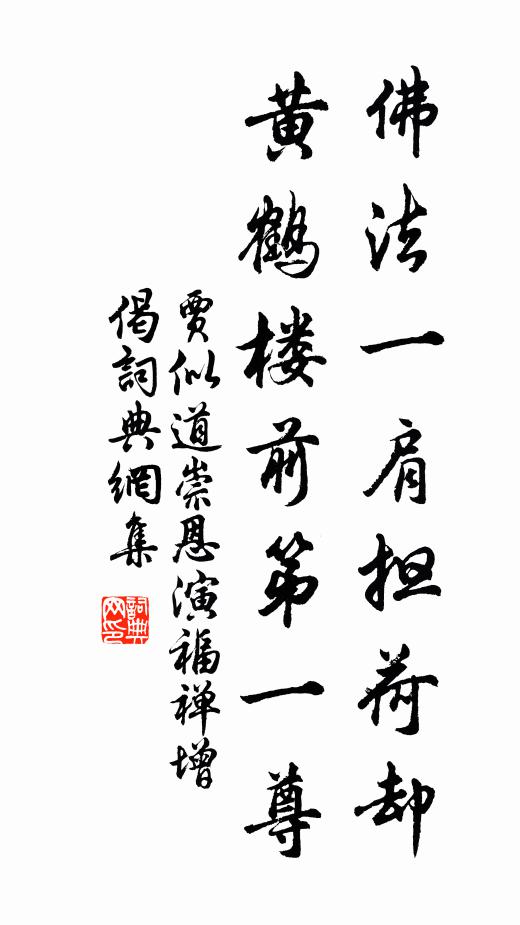 佛法一肩担荷却
黄鹤楼前第一尊
贾似道崇恩演福禅增
偈詞典網集
詞典
网印